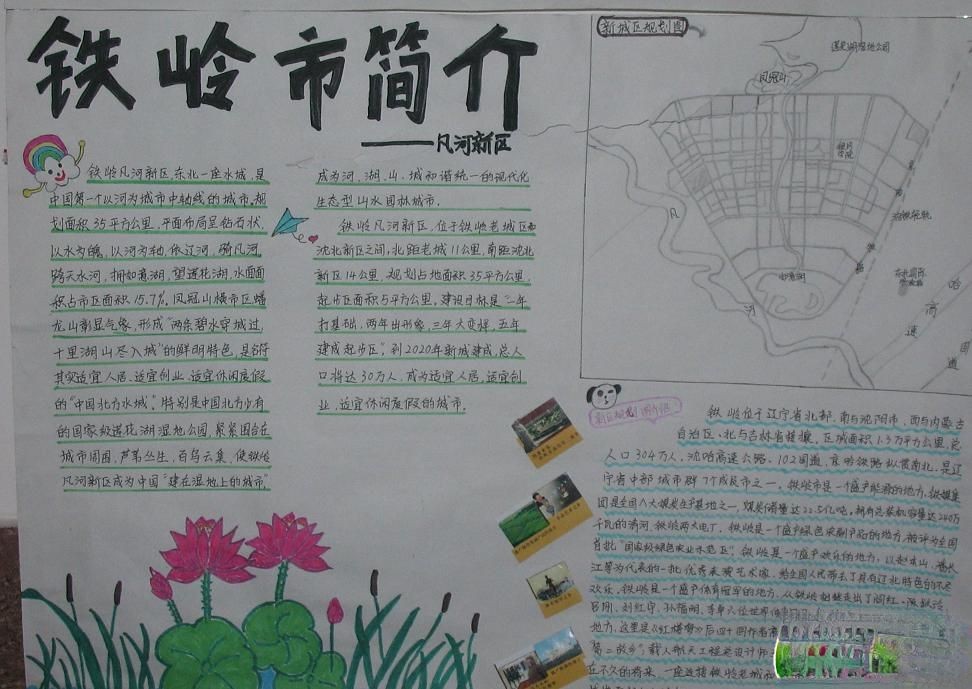 铁岭市简介
——凡河新区
铁岭凡河新区,东北一座水城,是
中国第一个以河为城市中轴线的城市。规
划面积35平方公里,平面布局呈钻石状,
以水为魄,以河为轴,依辽河,骑凡河,
跨天水河,拥如意湖,望莲花湖,水面面
积占市区面积15.7%。凤冠山横市区蟠
龙山彰显气象,形成“两条碧水穿城过,
十里湖山尽入城”的鲜明特色,是名符
其实适宜人居、适宜创业、适宜休闲度假
的“中国北方水城”。特别是中国北方少有
的国家级莲花湖湿地公园,紧紧围合在
城市周围,芦苇丛生,百鸟云集,使铁岭
凡河新区成为中国“建在湿地上的城市”,
成为河、湖、山、城和谐统一的现代化
生态型山水园林城市。
铁岭凡河新区,位于铁岭老城区和
沈北新区之间,北距老城11公里,南距沈北
新区14公里,规划占地面积35平方公里,
起步区面积5平方公里。建设目标是“一年
打基础,两年出形象,三年大变样,五年
建成起步区”。到2020年新城建成,总人
口将达30万人,成为适宜人居、适宜创
业、适宜休闲度假的城市。
新城区规划图
莲花湖湿地公园
凤冠山
凡
河
如意湖
哈
高
速
国
道
新区规划图介绍
铁岭位于辽宁省北部,南与沈阳市、西与内蒙古
自治区、北与吉林省接壤,区域面积1.3万平方公里,总
人口304万人,沈哈高速公路、102国道,京哈铁路纵贯南北,是辽
宁省中部城市群7个成员市之一。铁岭市是一个盛产能源的地方,铁煤集
团是全国八大煤炭生产基地之一,煤炭储量达22.5亿吨,拥有总装机容量达240万
千瓦的清河、铁岭两大电厂。铁岭是一个盛产绿色农副产品的地方,被评为全国
首批“国家级绿色农业示范区”。铁岭是一个盛产欢乐的地方,以赵本山、潘长
江等为代表的一批优秀表演艺术家,给全国人民带去了具有辽北特色的不尽
欢乐,铁岭是一个盛产体育冠军的地方,从铁岭相继走出了阎红、陈跃玲
吕刚、刘红宇、孙福明、李卓六位世界
地方,这里是《红楼梦》后四十回作者
第二故乡;载人航天工程总设计师
在不久的将来,一座连接铁岭老城和